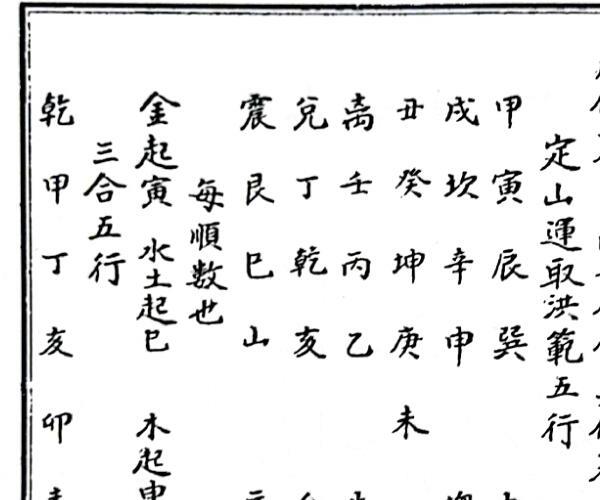 定山運取洪範五行
甲寅辰巽
戌坎辛申
丑癸坤庚未
离壬丙乙
兌丁乾亥
震艮巳山
每順数也
金起寅 水土起巳 木起申
三合五行
乾甲丁亥卯